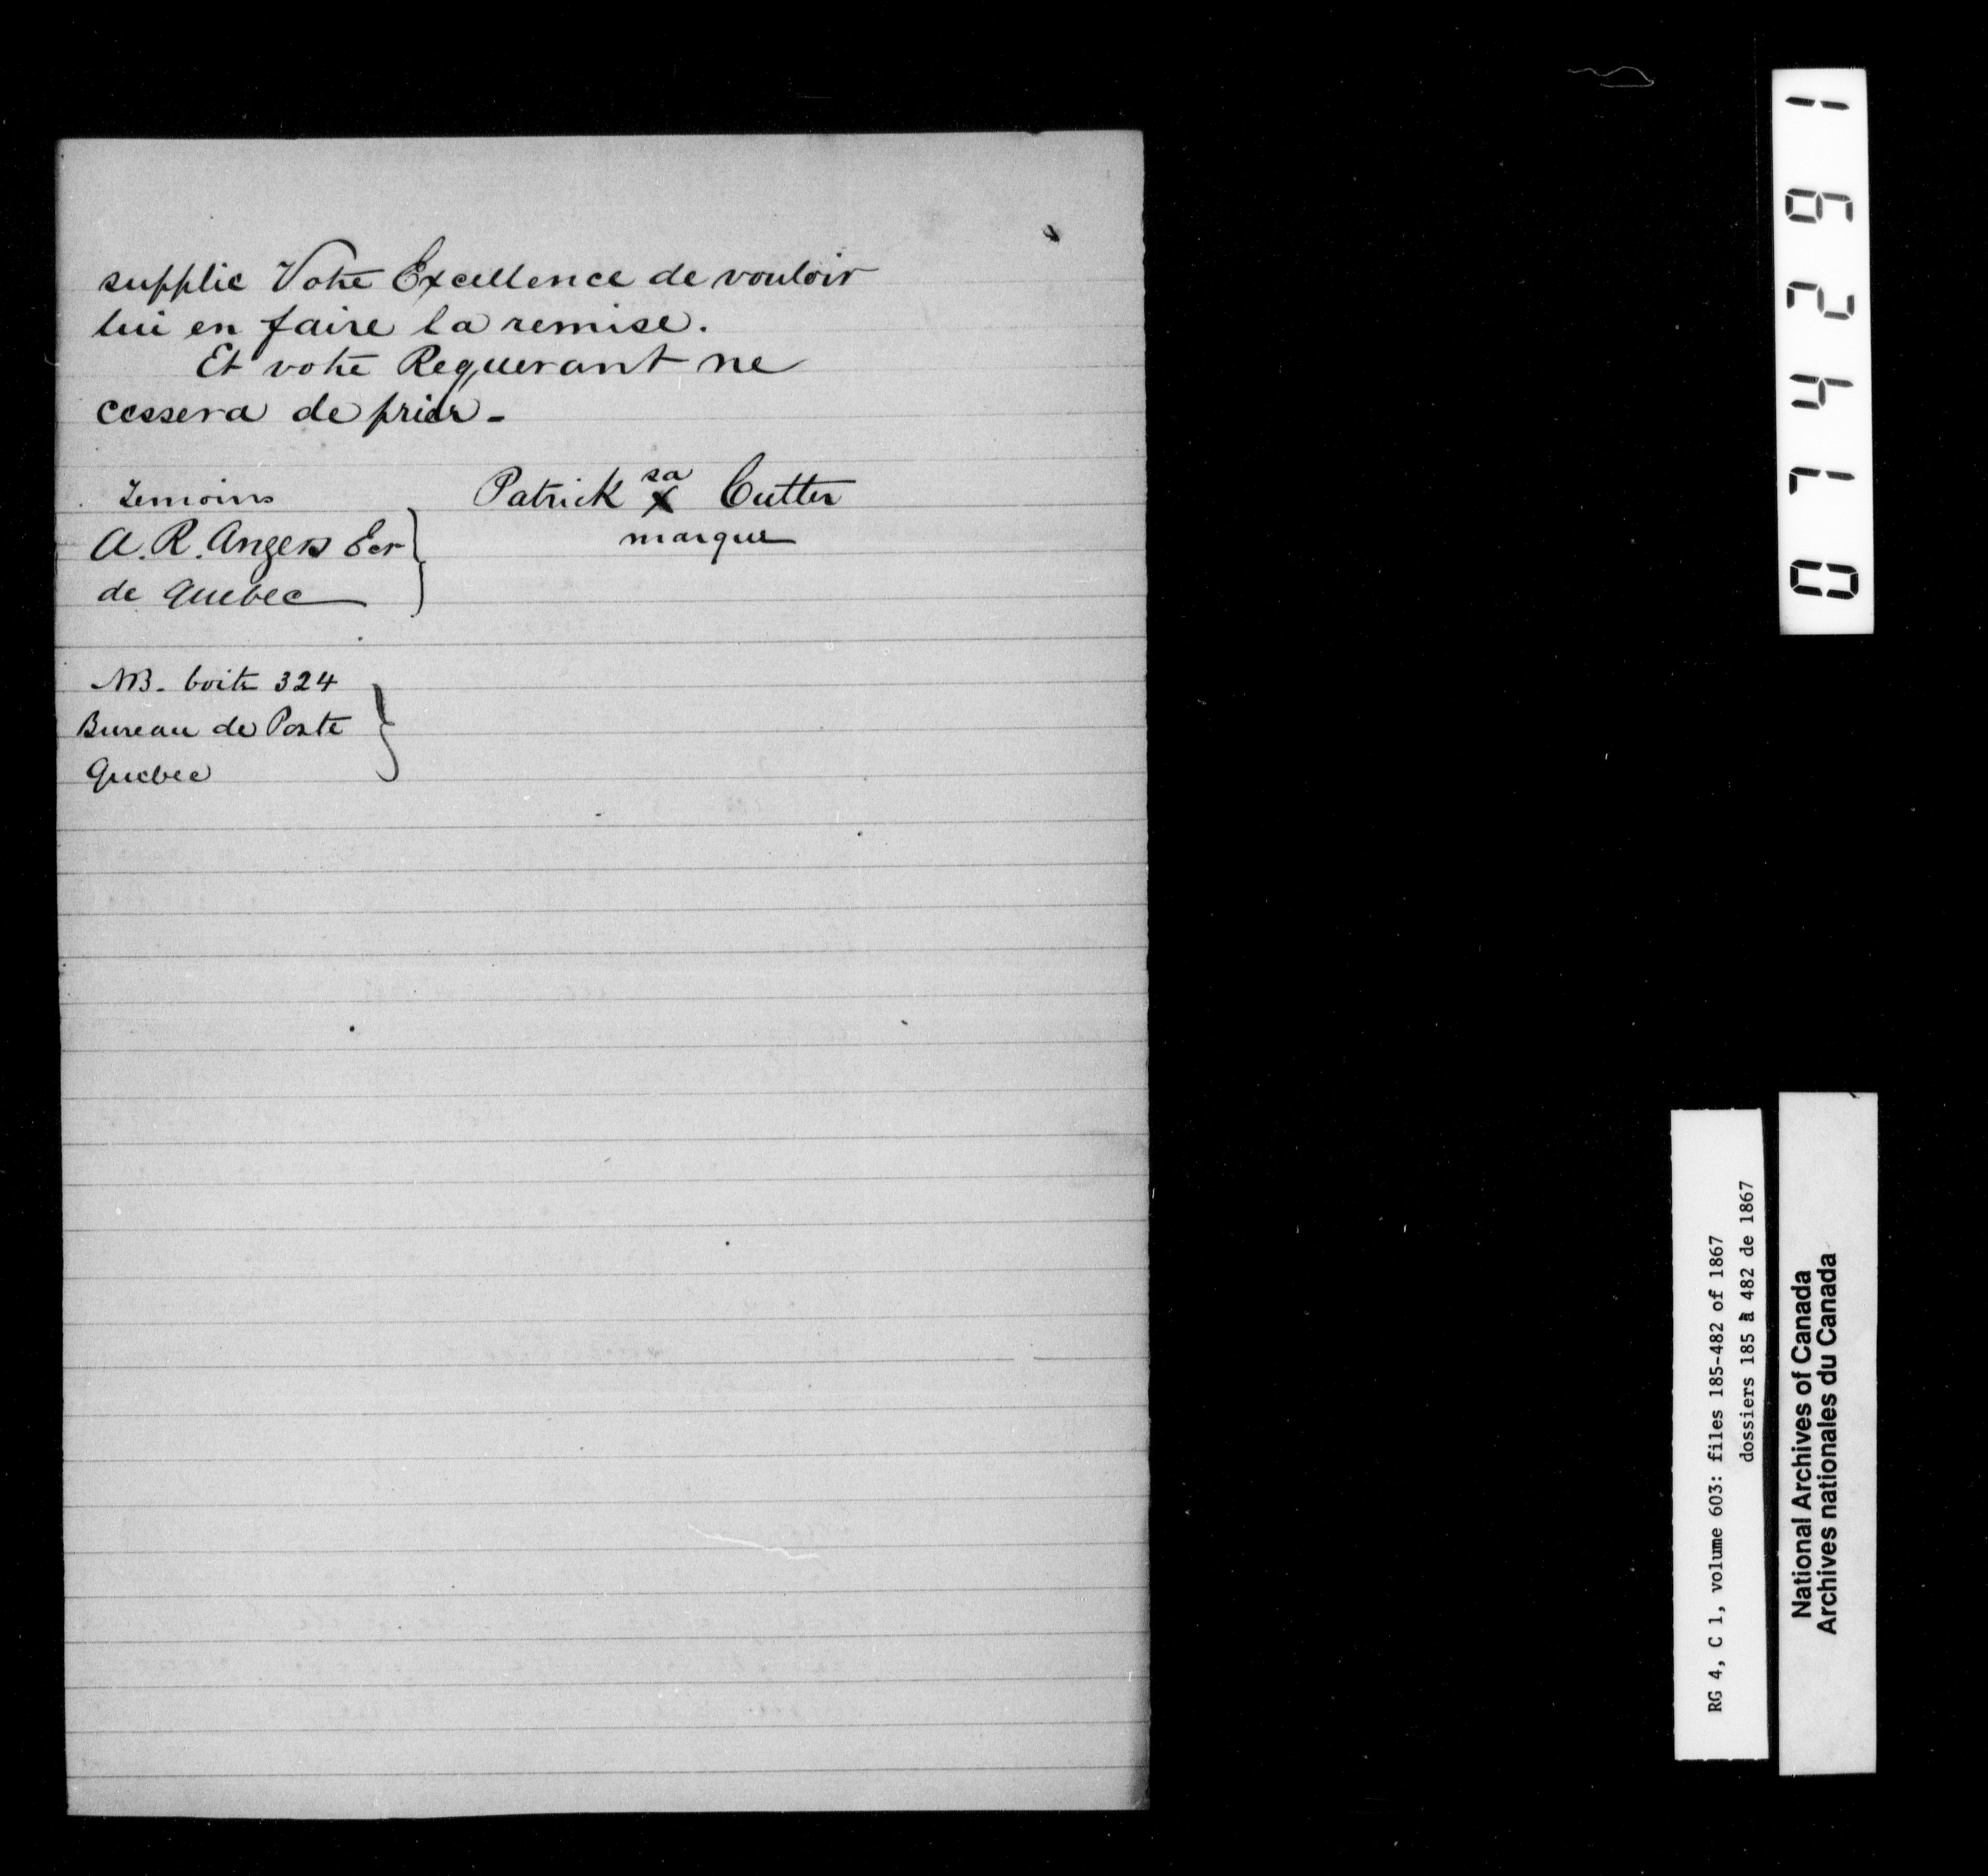 supplie Votre Excellence de vouloir
lui en faire la remise.
Et votre Requerant ne
cessera de prier -
Temoins
A. R. Angers Ecr
de Quebec
Patrick sa X Cutter
marque
NB. boite 324
Bureau de Poste
Quebec
074291
RG 4, C 1, volume 603: files 185-482 of 1867
dossiers 185 à 482 de 1867
National Archives of Canada
Archives nationales du Canada